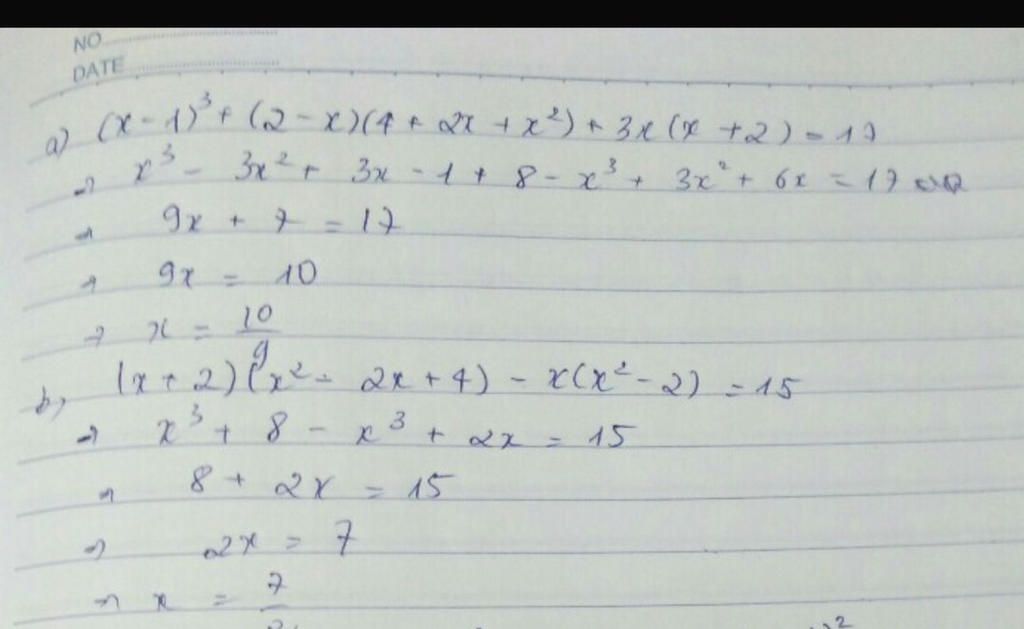 NO
DATE
a) (x - 1)³ + (2 - x)(4 + 2x + x²) + 3x(x + 2) = 17
→ x³ - 3x² + 3x - 1 + 8 - x³ + 3x² + 6x = 17
→ 9x + 7 = 17
→ 9x = 10
→ x = 10/9
b, (x + 2)(x² - 2x + 4) - x(x² - 2) = 15
→ x³ + 8 - x³ + 2x = 15
→ 8 + 2x = 15
→ 2x = 7
→ x = 7